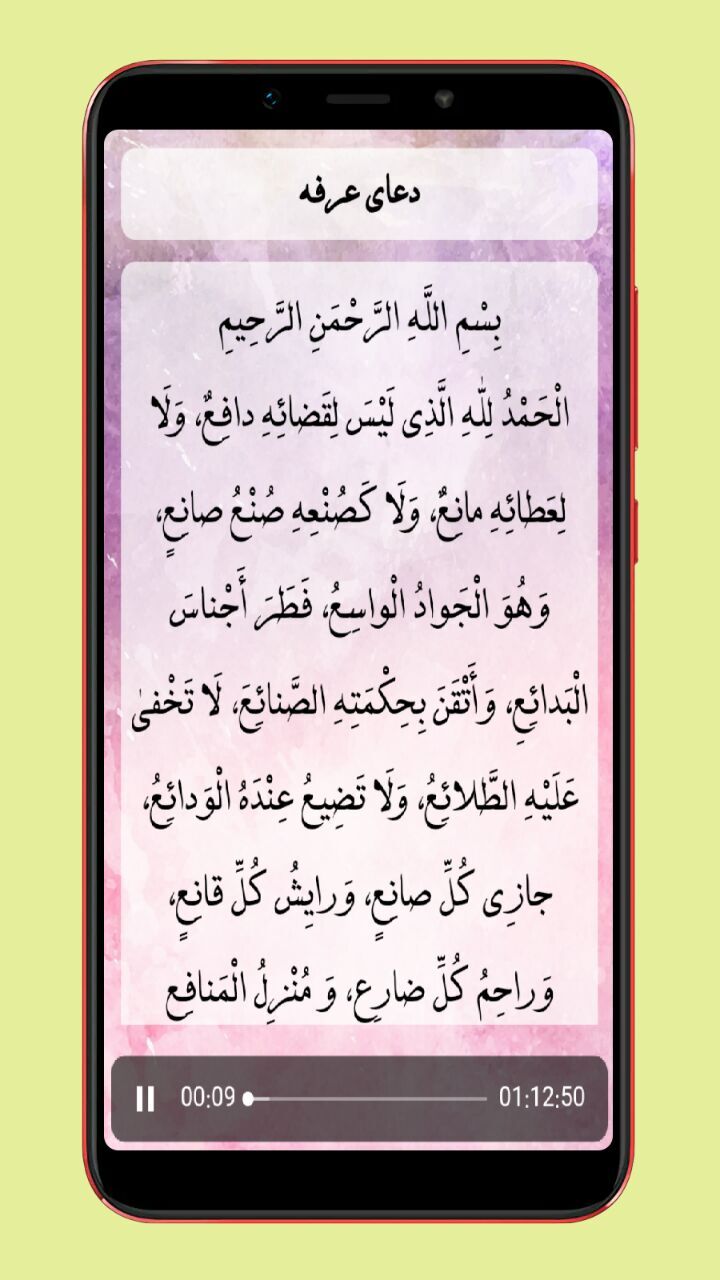 دعای عرفه
بِسْمِ اللَّهِ الرَّحْمَنِ الرَّحِيمِ
الْحَمْدُ لِلّٰهِ الَّذِى لَيْسَ لِقَضائِهِ دافِعٌ، وَلَا
لِعَطائِهِ مانِعٌ، وَلَا كَصُنْعِهِ صُنْعُ صانِعٍ،
وَهُوَ الْجَوادُ الْواسِعُ، فَطَرَ أَجْناسَ
الْبَدائِعِ، وَأَتْقَنَ بِحِكْمَتِهِ الصَّنائِعَ، لَا تَخْفىٰ
عَلَيْهِ الطَّلائِعُ، وَلَا تَضِيعُ عِنْدَهُ الْوَدائِعُ،
جازِى كُلِّ صانِعٍ، وَرايِشُ كُلِّ قانِعٍ،
وَراحِمُ كُلِّ ضارِعٍ، وَ مُنْزِلُ الْمَنافِعِ
00:09 01:12:50